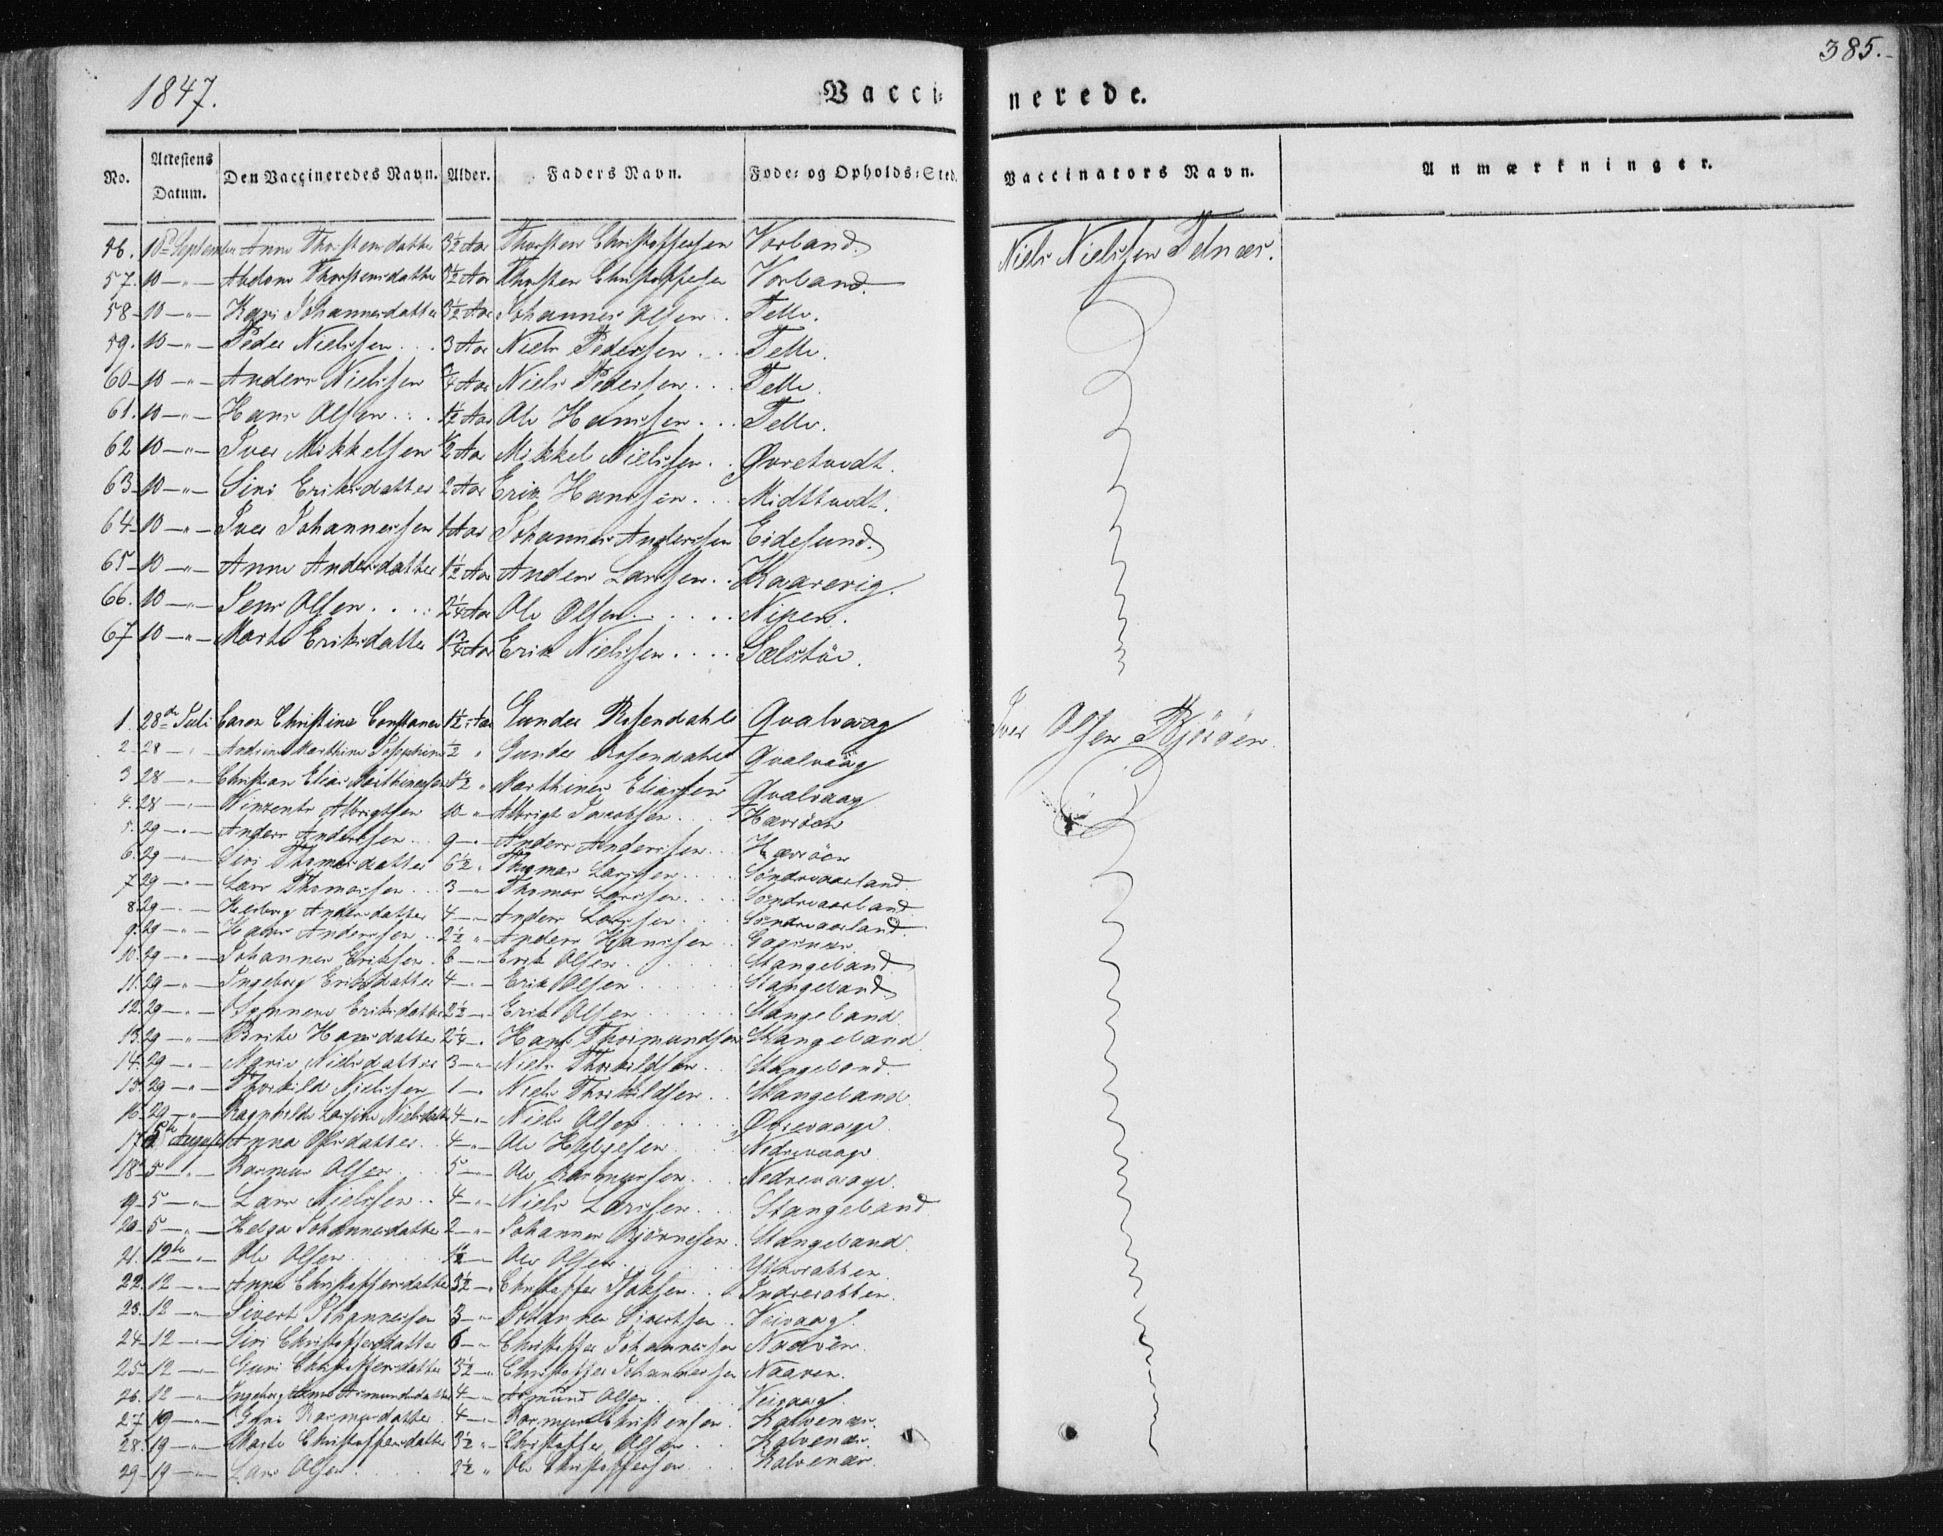 385.
1847.
Vaccinerede.
No. Attestens Datum. Den Vaccineredes Navn. Alder. Faders Navn. Føde- og Opholds-Sted. Vaccinators Navn. Anmærkninger.
46. 10de September Anne Thorstensdatter 3½ Aar Thorsten Christoffersen Vorland. Niels Nielssen
57. 10 — " — Thorstensdatter ½ Aar Thorsten Christoffersen Vorland.
58 10 — " — Kari Johannesdatter 3½ Aar Johannes Olsen Telle.
59. 10 — " — Peder Nielssen 3 Aar Niels Pederssen Telle.
60 10 — " — Anders Nielssen ¾ Aar Niels Pederssen Telle.
61. 10 — " — Hans Olsen 1½ Aar Ole Hanssen Telle.
62 10 — " — Iver Mikkelsen ½ Aar Mikkel Nielssen Øvretvedt.
63 10 — " — Siri Eriksdatter 2 Aar Erik Hanssen Midttvedt.
64 10 — " — Iver Johannessen 1 Aar Johannes Anderssen Eidesund.
65 10 — " — Anne Andersdatter 1½ Aar Anders Larssen Kaarevig.
66. 10 — " — Jens Olsen 2¼ Aar Ole Olsen Nipen.
67 10 — " — Marte Eriksdatter 1¾ Aar Erik Nielssen Sælstøe.
1. 28de Juli Christine 1½ Aar Gunder Rosendahl Qvalvaag Iver Olsen
2 28 — " ½ " Gunder Rosendahl Qvalvaag
3 28 — " — Christian Elias Marthinussen 1½ " Marthines Eliassen Qvalvaag
4. 28 — " — Albrigtsen 10 — " Albrigt Jacobsen Hævrøen
5. 29 — " — Anders Anderssen 9 — " Anders Anderssen Hævrøen
6. 29 — " — Siri Thomasdatter 6½ " Thomas Larssen Søndrevaarland
7 29 — " — Lars Thomassen 3 — " Thomas Larssen Søndrevaarland
8. 29 — " — Andersdatter 4 — " Anders Larssen Søndrevaarland
9. 29 — " — Hans Anderssen 2½ " Anders Hanssen
10. 29 — " — Johannes Eriksen 6 — " Erik Olsen Stangeland
11. 29 — " — Ingeborg Eriksdatter 4 — " Erik Olsen Stangeland
12. 29 — " — Synneve Eriksdatter 2½ — " Erik Olsen Stangeland
13. 29 — " — Brite Hansdatter 2¼ — " Hans Thormundsen Stangeland
14. 29 — " — Marie Nielsdatter 3 — " Niels Thorkildsen Stangeland.
15. 29 — " — Thorkild Nielssen 1 — " Niels Thorkildsen Stangeland
16. 29 — " — Ragnhilde Nielsdatter 4 — " Niels Olsen Øvrevaage
17. 5te August Anna Olsdatter 4 — " Ole Helgesen Nedrevaage
18. 5 — " — Rasmus Olsen 5 — " Ole Rasmussen Nedrevaage.
19 5 — " — Lars Nielssen 4 — " Niels Larssen Stangeland
20 5 — " — Helga Johannesdatter 2 — " Johannes Bjørnesen Stangeland
21. 12te — " — Ole Olsen 1½ — Ole Olsen
22. 12 — " — Anna Christoffersdatter 3½ — " Christoffer
23. 12 — " — Sivert Johannessen 3 — " Johannes Sivertsen Veivaag
24 12 — " — Siri Christoffersdatter 6 — " Christoffer Johannessen
25 12 — " — Guri Christoffersdatter 3½ — " Christoffer Johannessen
26. 12 — " — Ingeborg Anna Asmundsdatter 4 — " Asmund Olsen Veivaag
27 19 — " — Rasmusdatter 4 — " Rasmus Christensen Kalvenæs.
28. 19 — " — Marte Christoffersdatter 3½ " Christoffer Olsen Kalvenæs.
29 19 — " — Lars Olsen 2½ " Ole Christoffersen Kalvenæs.